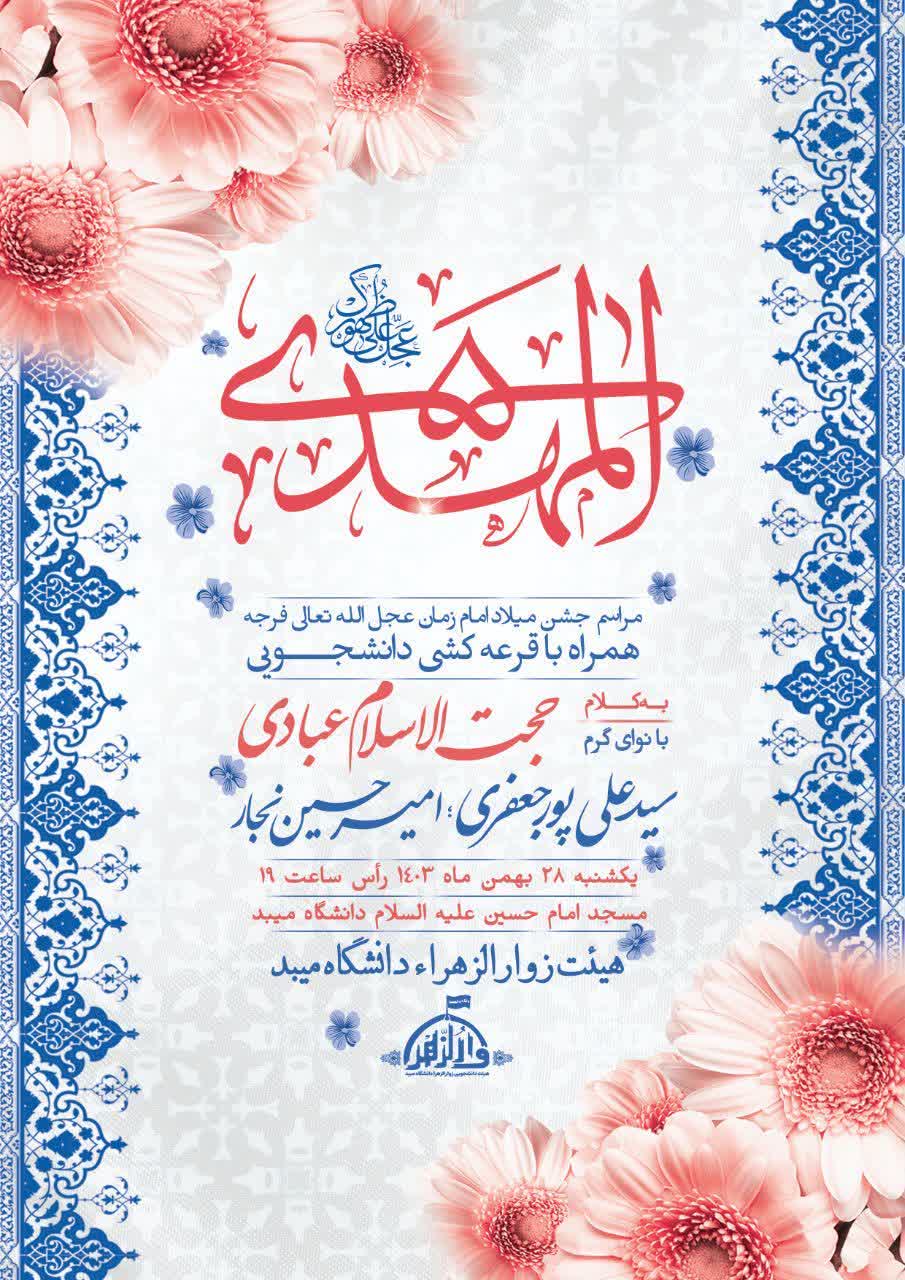 المهدی
عجل علی ظهورک
مراسم جشن میلاد امام زمان عجل الله تعالی فرجه
همراه با قرعه کشی دانشجویی
به کلام
حجت الاسلام عبادی
با نوای گرم
سید علی پورجعفری؛ امیرحسین نجار
یکشنبه ۲۸ بهمن ماه ۱۴۰۳ رأس ساعت ۱۹
مسجد امام حسین علیه السلام دانشگاه میبد
هیئت زوارالزهراء دانشگاه میبد
زوارالزهرا
هیئت دانشجویی زوارالزهرا دانشگاه میبد